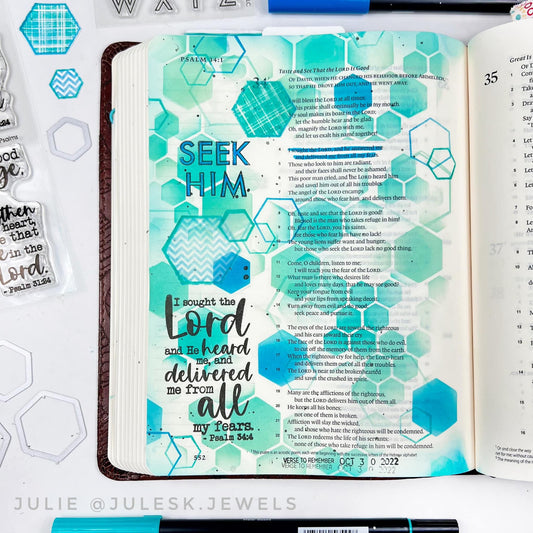 PSALM 34:1
Taste and See That the LORD Is Good
OF DAVID, WHEN HE CHANGED HIS BEHAVIOR BEFORE ABIMELECH,
SO THAT HE DROVE HIM OUT, AND HE WENT AWAY.
will bless the LORD at all times;
his praise shall continually be in my mouth.
My soul makes its boast in the LORD;
let the humble hear and be glad.
Oh, magnify the LORD with me,
and let us exalt his name together!
I sought the LORD, and he answered me
and delivered me from all my fears.
Those who look to him are radiant,
and their faces shall never be ashamed.
This poor man cried, and the LORD heard him
and saved him out of all his troubles.
The angel of the LORD encamps
around those who fear him, and delivers them.
Oh, taste and see that the LORD is good!
Blessed is the man who takes refuge in him!
Oh, fear the LORD, you his saints,
for those who fear him have no lack!
The young lions suffer want and hunger;
but those who seek the LORD lack no good thing.
Come, O children, listen to me;
I will teach you the fear of the LORD.
What man is there who desires life
and loves many days, that he may see good?
Keep your tongue from evil
and your lips from speaking deceit.
Turn away from evil and do good;
seek peace and pursue it.
The eyes of the LORD are toward the righteous
and his ears toward their cry.
The face of the LORD is against those who do evil,
to cut off the memory of them from the earth.
When the righteous cry for help, the LORD hears
and delivers them out of all their troubles.
The LORD is near to the brokenhearted
and saves the crushed in spirit.
Many are the afflictions of the righteous,
but the LORD delivers him out of them all.
He keeps all his bones;
not one of them is broken.
Affliction will slay the wicked,
and those who hate the righteous will be condemned.
The LORD redeems the life of his servants;
none of those who take refuge in him will be condemned.
SEEK
HIM
I sought the
Lord
and He heard
me, and
delivered
me from
all
my fears.
- Psalm 34:4
552
VERSE TO REMEMBER OCT 3 0 2022
VERSE TO REMEMBER OCT 3 0 2022
35
heart
me that
in the
Lord.
- Psalm 31:24
JULIE @JULESK.JEWELS